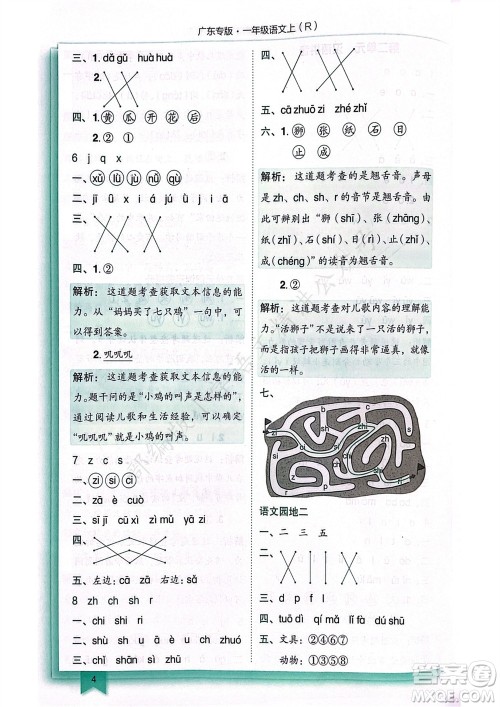 广东专版·一年级语文上（R）
三、1.dǎ gǔ huà huà
2.
四、1.黄 瓜 开 花 后
2.②
6 j q x
一、xǔ lǜ jù jú
二、jī ū ú ù ī ā
三、
四、1.②
解析：这道题考查获取文本信息的能
力。从“妈妈买了七只鸡”一句中，可
以得到答案。
2.叽叽叽
解析：这道题考查获取文本信息的能
力。题干问的是“小鸡的叫声是怎样的”，
通过阅读儿歌和生活经验，可以发现
“叽叽叽”就是小鸡的叫声。
7 z c s
一、zi si ci
二、zā è cuò
三、sī jī cū xì zì mǔ yá zi
四、
五、左边：cā zā 右边：sǎ
8 zh ch sh r
一、
二、shù shù ā è ù è ch zhuó
三、chī shān shì zhǔ
4
四、
五、cā zhuō zi zhé zhǐ
六、1.狮 张 纸 石 日
止 成
解析：这道题考查的是翘舌音。声母
是 zh、ch、sh、r 的音节是翘舌音。由
此可辨别出“狮（shī）、张（zhāng）、
纸（zhǐ）、石（shí）、日（rì）、止（zhǐ）、
成（chéng）”的读音为翘舌音。
2.②
解析：这道题考查对儿歌内容的理解
能力。“活狮子”并非指真的活的狮子，
而是指孩子把折狮子拿在手里，折狮
子看起来非常逼真，跟活的一样。
七、
语文园地二
一、二 三 五
二、
三、
四、tuō dì qí mǎ lā chě
五、文具：②④⑥⑦
动物：①③⑤